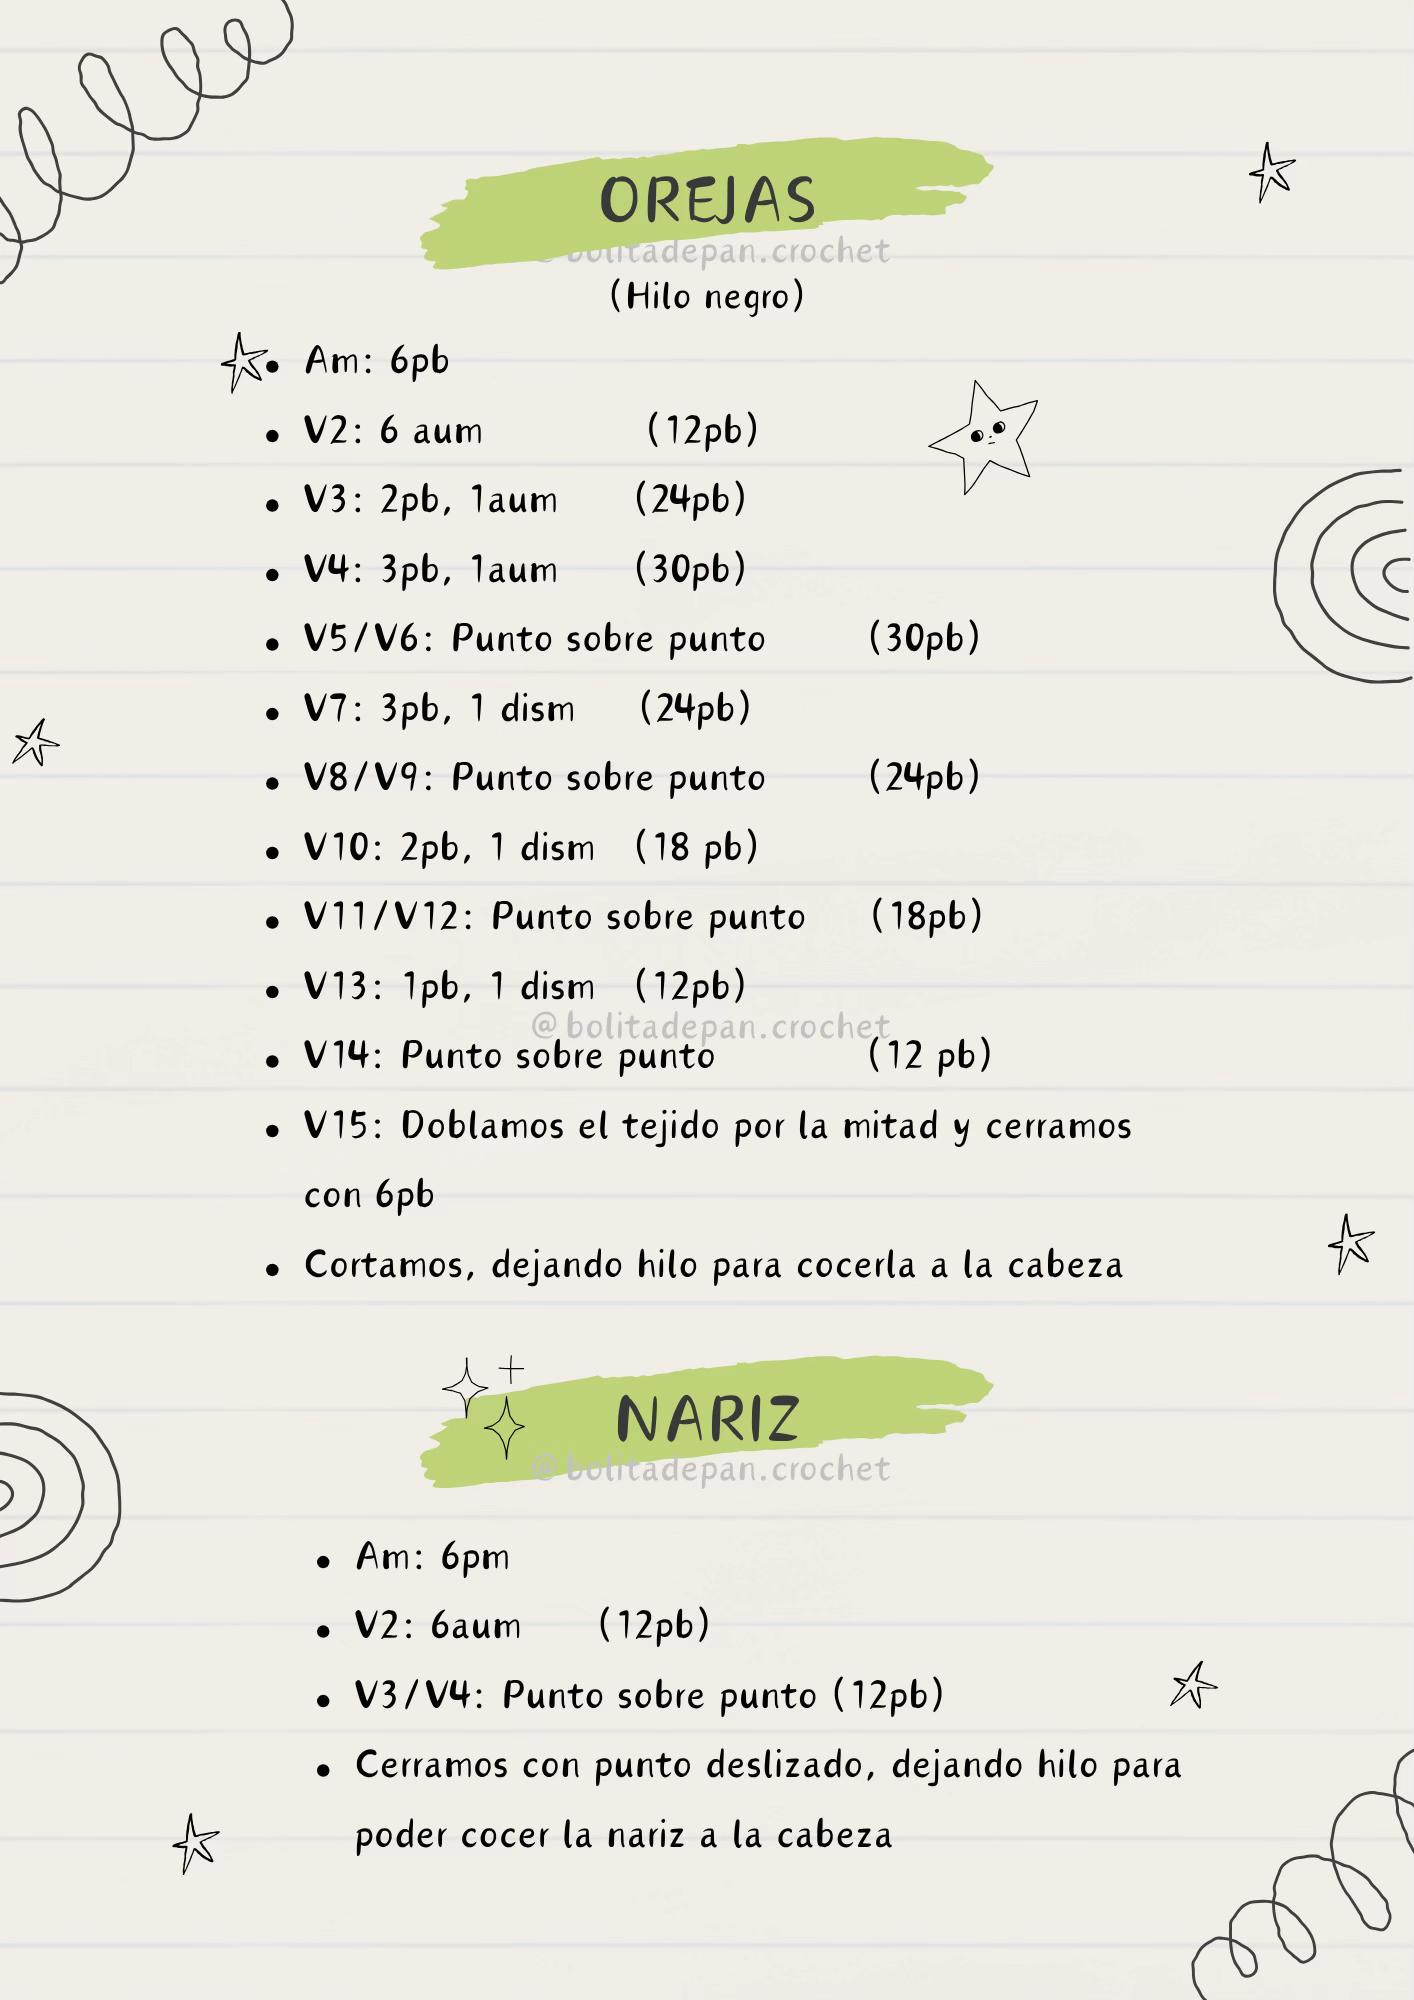 OREJAS
@bolitadepan.crochet
(Hilo negro)
• Am: 6pb
• V2: 6 aum (12pb)
• V3: 2pb, 1aum (24pb)
• V4: 3pb, 1aum (30pb)
• V5/V6: Punto sobre punto (30pb)
• V7: 3pb, 1 dism (24pb)
• V8/V9: Punto sobre punto (24pb)
• V10: 2pb, 1 dism (18 pb)
• V11/V12: Punto sobre punto (18pb)
• V13: 1pb, 1 dism (12pb)
@bolitadepan.crochet
• V14: Punto sobre punto (12 pb)
• V15: Doblamos el tejido por la mitad y cerramos
con 6pb
• Cortamos, dejando hilo para cocerla a la cabeza
NARIZ
@bolitadepan.crochet
• Am: 6pm
• V2: 6aum (12pb)
• V3/V4: Punto sobre punto (12pb)
• Cerramos con punto deslizado, dejando hilo para
poder cocer la nariz a la cabeza